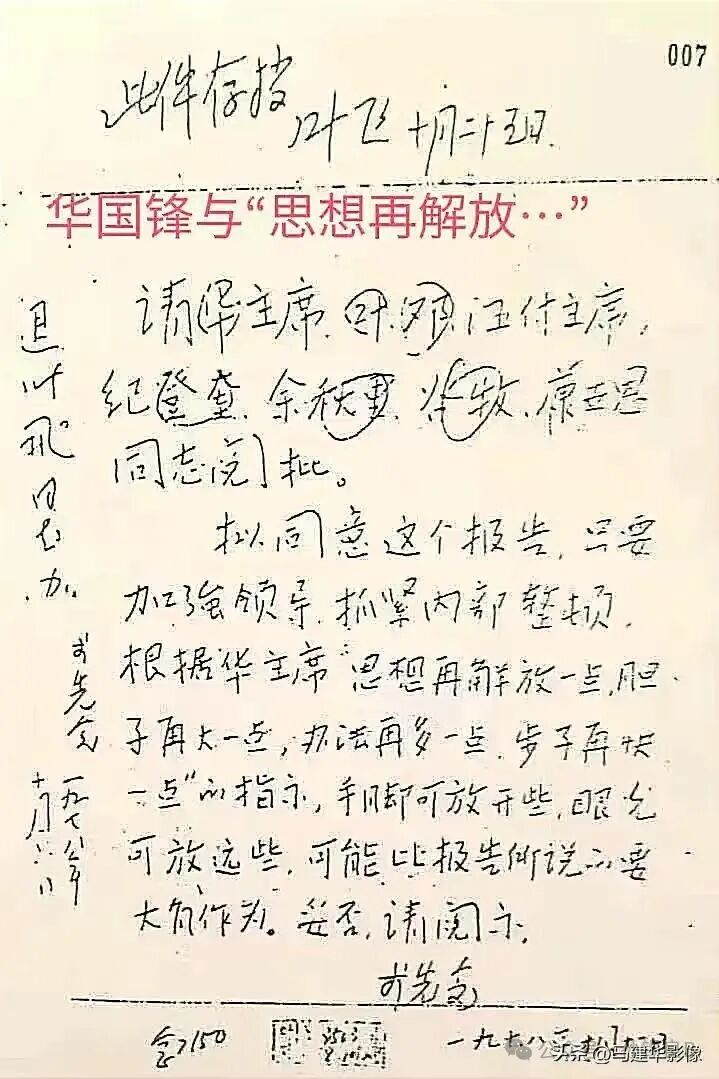 007
此件存档
叶飞 十月二十五日
华国锋与“思想再解放…”
请华主席、叶、邓、汪付主席,
纪登奎、余秋里、谷牧、康世恩
同志阅批。
拟同意这个报告,只要
加强领导,抓紧内部整顿,
根据华主席“思想再解放一点,胆
子再大一点,办法再多一点,步子再快
一点”的指示,手脚可放开些,眼光
可放远些,可能比报告所说的要
大有作为。妥否,请阅示。
李先念
一九七八年十月十二日
退叶飞同志办。
李先念
一九七八年
7150
头条@马建华影像